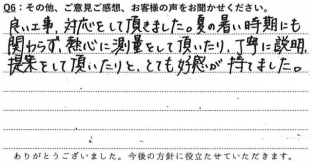 Q6：その他、ご意見ご感想、お客様の声をお聞かせください。
良い工事、対応をして頂きました。夏の暑い時期にも
関わらず、熱心に測量をして頂いたり、丁寧に説明、
提案をして頂いたりと、とても好感が持てました。
ありがとうございました。今後の方針に役立たせていただきます。